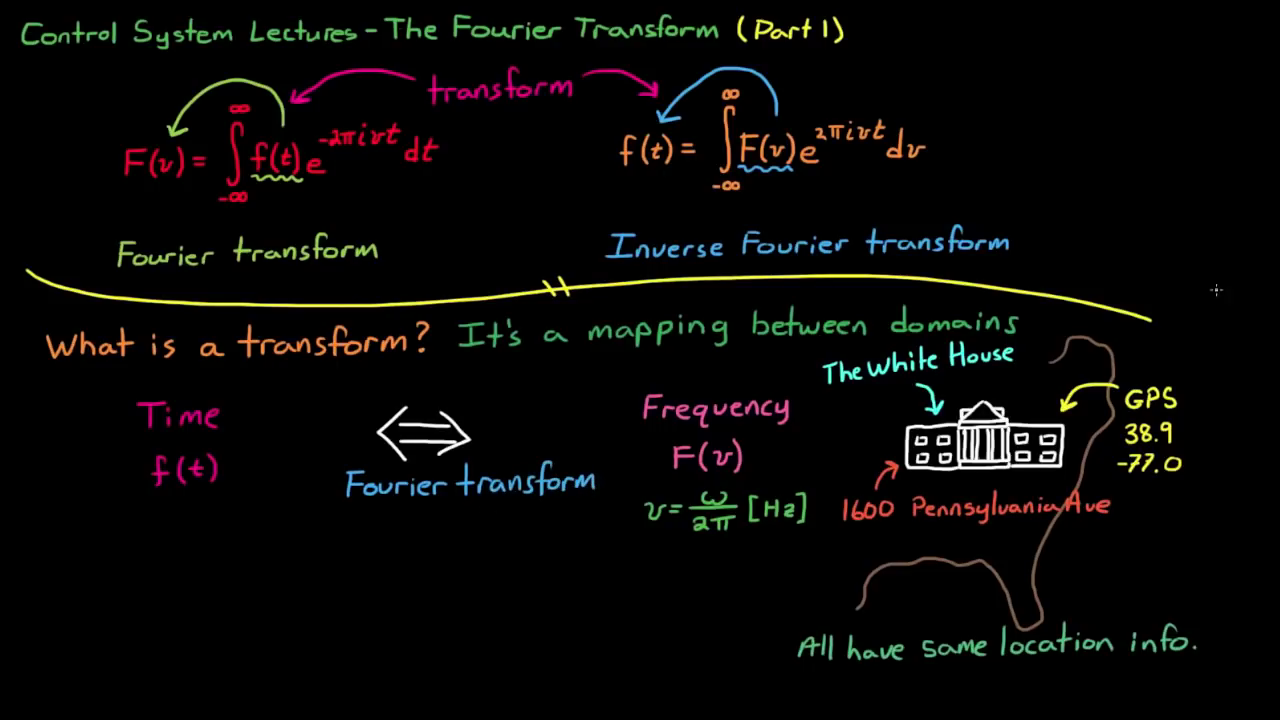 Control System Lectures - The Fourier Transform (Part 1)
transform
F(v) = ∫_{-∞}^{∞} f(t) e^{-2πivt} dt
f(t) = ∫_{-∞}^{∞} F(v) e^{2πivt} dv
Fourier transform
Inverse Fourier transform
What is a transform? It's a mapping between domains
Time
f(t)
Fourier transform
Frequency
F(v)
v = ω/2π [Hz]
The White House
GPS
38.9
-77.0
1600 Pennsylvania Ave
All have same location info.